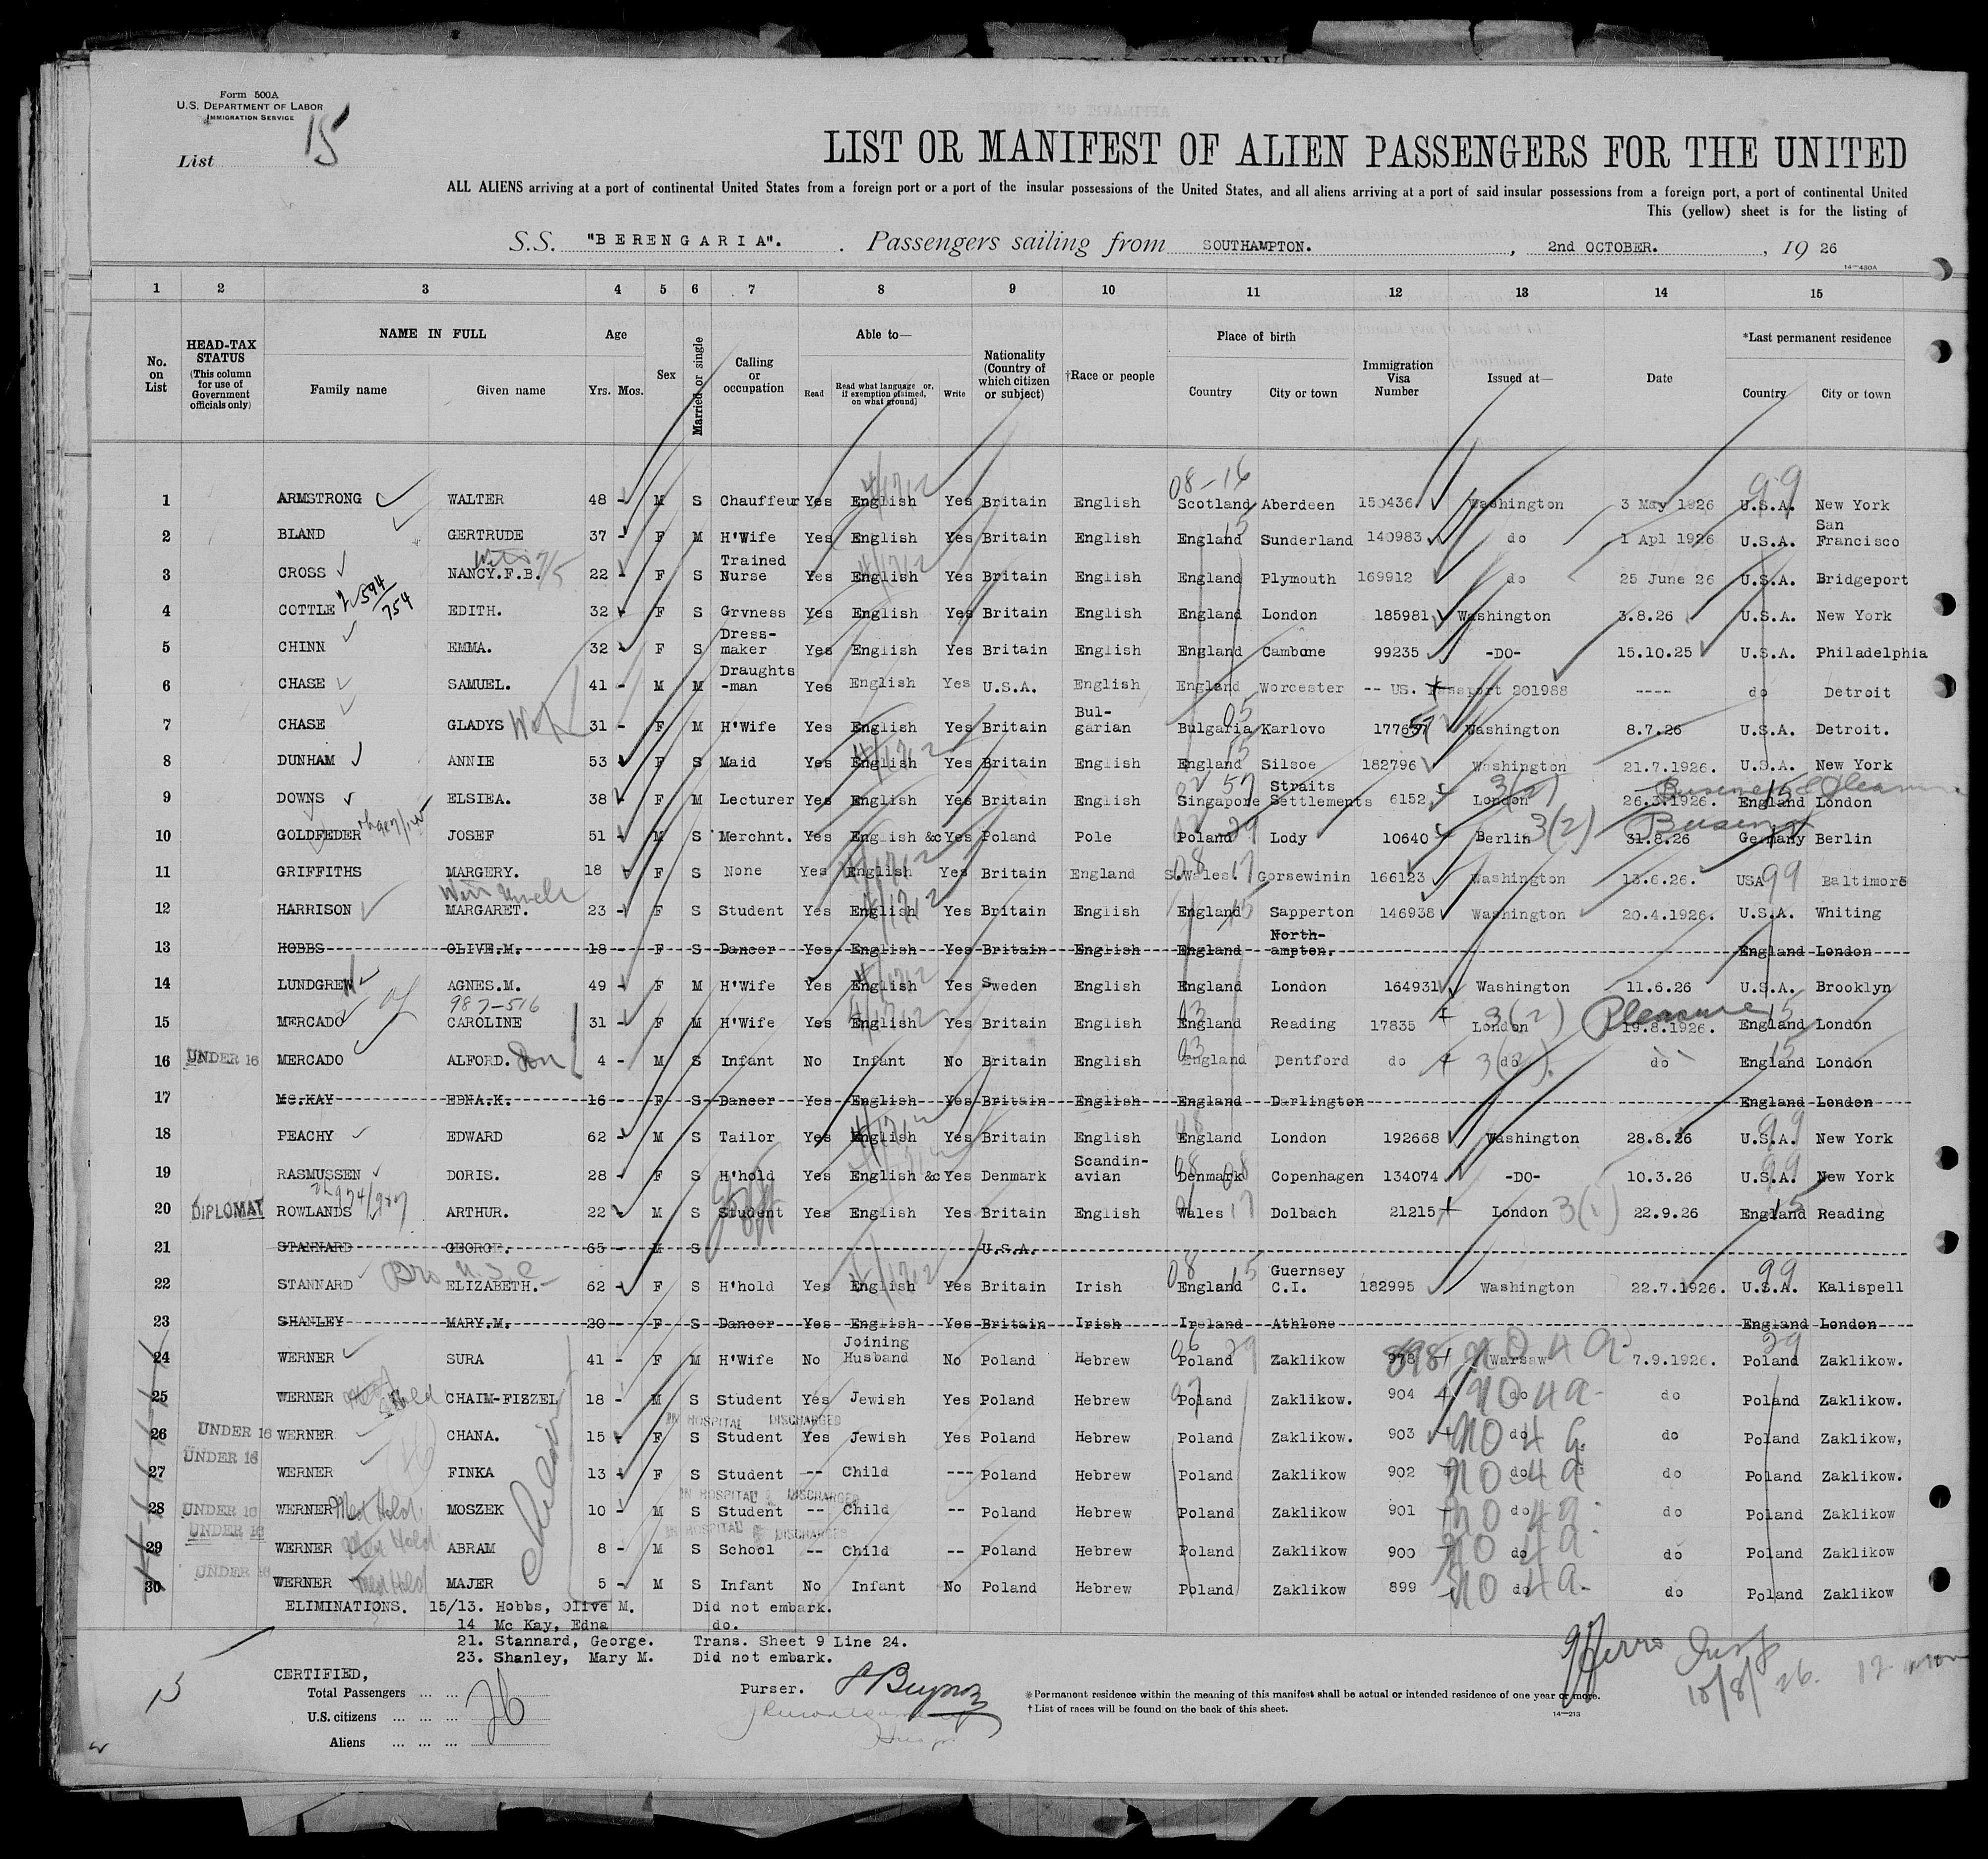 Form 500A
U.S. DEPARTMENT OF LABOR
IMMIGRATION SERVICE
List 15
LIST OR MANIFEST OF ALIEN PASSENGERS FOR THE UNITED
ALL ALIENS arriving at a port of continental United States from a foreign port or a port of the insular possessions of the United States, and all aliens arriving at a port of said insular possessions from a foreign port, a port of continental United
This (yellow) sheet is for the listing of
S.S. "BERENGARIA". Passengers sailing from SOUTHAMPTON. , 2nd OCTOBER. , 19 26
14—430A
1 2 3 4 5 6 7 8 9 10 11 12 13 14 15
No. on List
HEAD-TAX STATUS (This column for use of Government officials only)
NAME IN FULL
Family name Given name
Age
Yrs. Mos.
Sex
Married or single
Calling or occupation
Able to—
Read Read what language or, if exemption claimed, on what ground] Write
Nationality (Country of which citizen or subject)
†Race or people
Place of birth
Country City or town
Immigration Visa Number
Issued at—
Date
*Last permanent residence
Country City or town
08-16 99
1 ARMSTRONG WALTER 48 - M S Chauffeur Yes English Yes Britain English Scotland Aberdeen 150436 Washington 3 May 1926 U.S.A. New York
2 BLAND GERTRUDE 37 - F M H'Wife Yes English Yes Britain English England Sunderland 140983 do 1 Apl 1926 U.S.A. San Francisco
3 CROSS NANCY.F.B. 22 - F S Trained Nurse Yes English Yes Britain English England Plymouth 169912 do 25 June 26 U.S.A. Bridgeport
4 COTTLE EDITH. 32 - F S Grvness Yes English Yes Britain English England London 185981 Washington 3.8.26 U.S.A. New York
5 CHINN EMMA. 32 - F S Dress-maker Yes English Yes Britain English England Cambone 99235 -DO- 15.10.25 U.S.A. Philadelphia
6 CHASE SAMUEL. 41 - M M Draughts-man Yes English Yes U.S.A. English England Worcester -- US. Passport 201988 ---- do Detroit
7 CHASE GLADYS 31 - F M H'Wife Yes English Yes Britain Bul-garian Bulgaria Karlovo Washington 8.7.26 U.S.A. Detroit.
8 DUNHAM ANNIE 53 F S Maid Yes English Yes Britain English England Silsoe 182796 Washington 21.7.1926. U.S.A. New York
9 DOWNS ELSIEA. 38 - F M Lecturer Yes English Yes Britain English Singapore Straits Settlements 6152 London 3(2) 26.3.1926. England London
10 GOLDFEDER JOSEF 51 - M S Merchnt. Yes English &c Yes Poland Pole Poland Lody 10640 Berlin 3(2) 31.8.26 Germany Berlin
11 GRIFFITHS MARGERY. 18 F S None Yes English Yes Britain England S.Wales. Gorsewinin 166123 Washington 13.6.26. USA 99 Baltimore
12 HARRISON MARGARET. 23 - F S Student Yes English Yes Britain English England Sapperton 146938 Washington 20.4.1926. U.S.A. Whiting
13 HOBBS OLIVE.M. 18 - F S Dancer Yes English Yes Britain English England North-ampton. England London
14 LUNDGREN AGNES.M. 49 - F M H'Wife Yes English Yes Sweden English England London 164931 Washington 11.6.26 U.S.A. Brooklyn
987-516
15 MERCADO CAROLINE 31 - F M H'Wife Yes English Yes Britain English England Reading 17835 London 3(2) Pleasure 19.8.1926. England London
16 UNDER 16 MERCADO ALFORD. Son 4 - M S Infant No Infant No Britain English England Dentford do do 3(2). do England London
17 MC.KAY EDNA.K. 16 - F S Dancer Yes English Yes Britain English England Darlington England London
18 PEACHY EDWARD 62 - M S Tailor Yes English Yes Britain English England London 192668 Washington 28.8.26 U.S.A. New York
19 RASMUSSEN DORIS. 28 - F S H'hold Yes English &c Yes Denmark Scandin-avian Denmark Copenhagen 134074 -DO- 10.3.26 U.S.A. New York
20 DIPLOMAT ROWLANDS ARTHUR. 22 M S Student Yes English Yes Britain English Wales Dolbach 21215 London 3(1) 22.9.26 England Reading
21 STANNARD GEORGE. 65 - M S U.S.A.
22 STANNARD ELIZABETH. 62 - F S H'hold Yes English Yes Britain Irish England Guernsey C.I. 182995 Washington 22.7.1926. U.S.A. Kalispell
23 SHANLEY MARY.M. 20 - F S Dancer Yes English Yes Britain Irish Ireland Athlone England London
24 WERNER SURA 41 - F M H'Wife No Joining Husband No Poland Hebrew Poland Zaklikow Warsaw NO 4 a 7.9.1926. Poland Zaklikow.
25 WERNER CHAIM-FISZEL 18 - M S Student Yes Jewish Yes Poland Hebrew Poland Zaklikow. 904 do NO 4 a do Poland Zaklikow.
IN HOSPITAL DISCHARGED
26 UNDER 16 WERNER CHANA. 15 F S Student Yes Jewish Yes Poland Hebrew Poland Zaklikow. 903 do NO 4 a do Poland Zaklikow,
27 UNDER 16 WERNER FINKA 13 F S Student -- Child --- Poland Hebrew Poland Zaklikow 902 do NO 4 a do Poland Zaklikow.
IN HOSPITAL DISCHARGED
28 UNDER 16 WERNER Med Hold MOSZEK 10 - M S Student -- Child -- Poland Hebrew Poland Zaklikow 901 do NO 4 a do Poland Zaklikow
IN HOSPITAL DISCHARGED
29 UNDER 16 WERNER Med Hold ABRAM 8 - M S School -- Child -- Poland Hebrew Poland Zaklikow 900 do NO 4 a do Poland Zaklikow
30 UNDER 16 WERNER Med Hold MAJER 5 - M S Infant No Infant No Poland Hebrew Poland Zaklikow 899 do NO 4 a do Poland Zaklikow
ELIMINATIONS. 15/13. Hobbs, Olive M. Did not embark.
14 Mc Kay, Edna do.
21. Stannard, George. Trans. Sheet 9 Line 24.
23. Shanley, Mary M. Did not embark.
CERTIFIED,
Total Passengers ... ... 26
U.S. citizens ... ... ...
Aliens ... ... ...
Purser.
*Permanent residence within the meaning of this manifest shall be actual or intended residence of one year or more.
†List of races will be found on the back of this sheet.
14—213